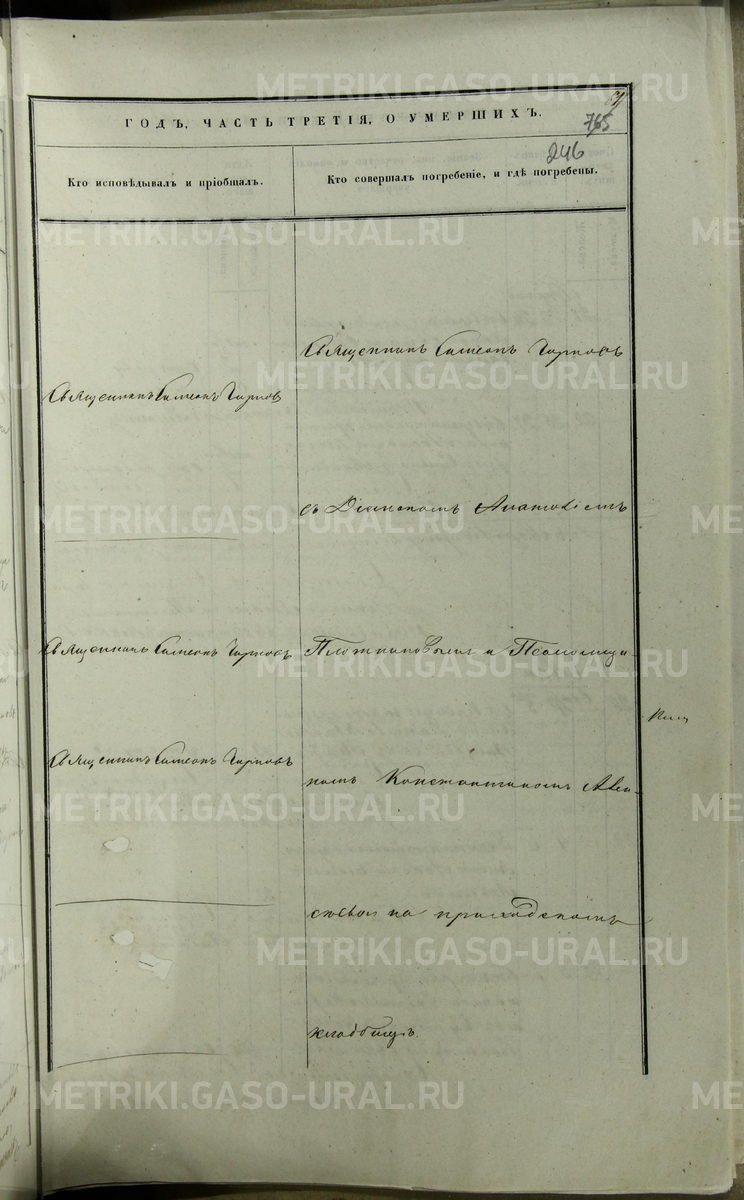 METRIKI.GASO-URAL.RU
765
ГОДЪ, ЧАСТЬ ТРЕТІЯ, О УМЕРШИХЪ.
246
Кто исповѣдывалъ и пріобщалъ.
Кто совершалъ погребеніе, и гдѣ погребены.
METRIKI.GASO-URAL.RU
Священникъ Симеонъ
METRIKI.GASO-URAL.RU
Священникъ Симеонъ
съ Діакономъ
METRIKI.GASO-URAL.RU
Священникъ Симеонъ
Плотниковымъ и Псаломщи-
METRIKI.GASO-URAL.RU
Священникъ Симеонъ
комъ Константиномъ
METRIKI.GASO-URAL.RU
на приходскомъ
METRIKI.GASO-URAL.RU
кладбищѣ.
METRIKI.GASO-URAL.RU